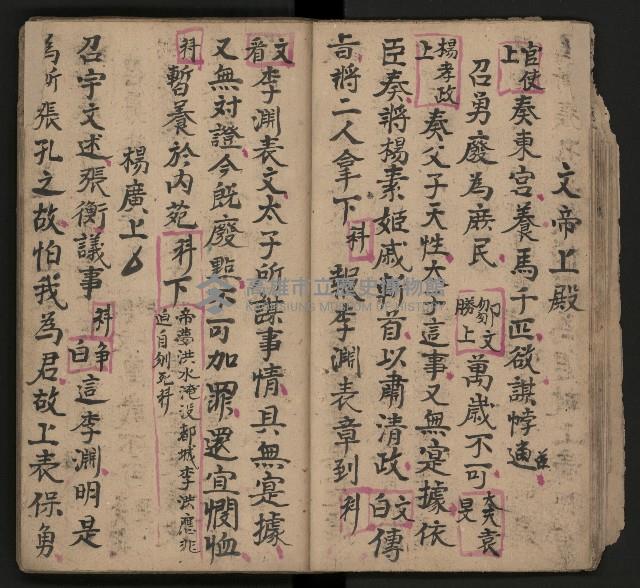 文帝上殿
官使上 奏東宮養馬千匹欲謀悖逼
召勇廢為庶民 鄒文勝上 萬歲不可 大夫袁旻
楊孝政上 奏父子天性太子這事又無寔據依
臣奏將楊素姬戚斬首以肅清政 文白 傳
旨將二人拿下 科 報李淵表章到 科
文看 李淵表文太子所謀事情具無寔據
又無対證今既廢黜不可加罪還宜憫恤
科 暫養於內苑 科 下 帝夢洪水淹没都城李洪應兆
迫自刎死科
楊廣上
召宇文述張衡議事 科 争白 這李淵明是
為所張孔之故怕我為君故上表保勇
高雄市立歷史博物館
KAOHSIUNG MUSEUM OF HISTORY